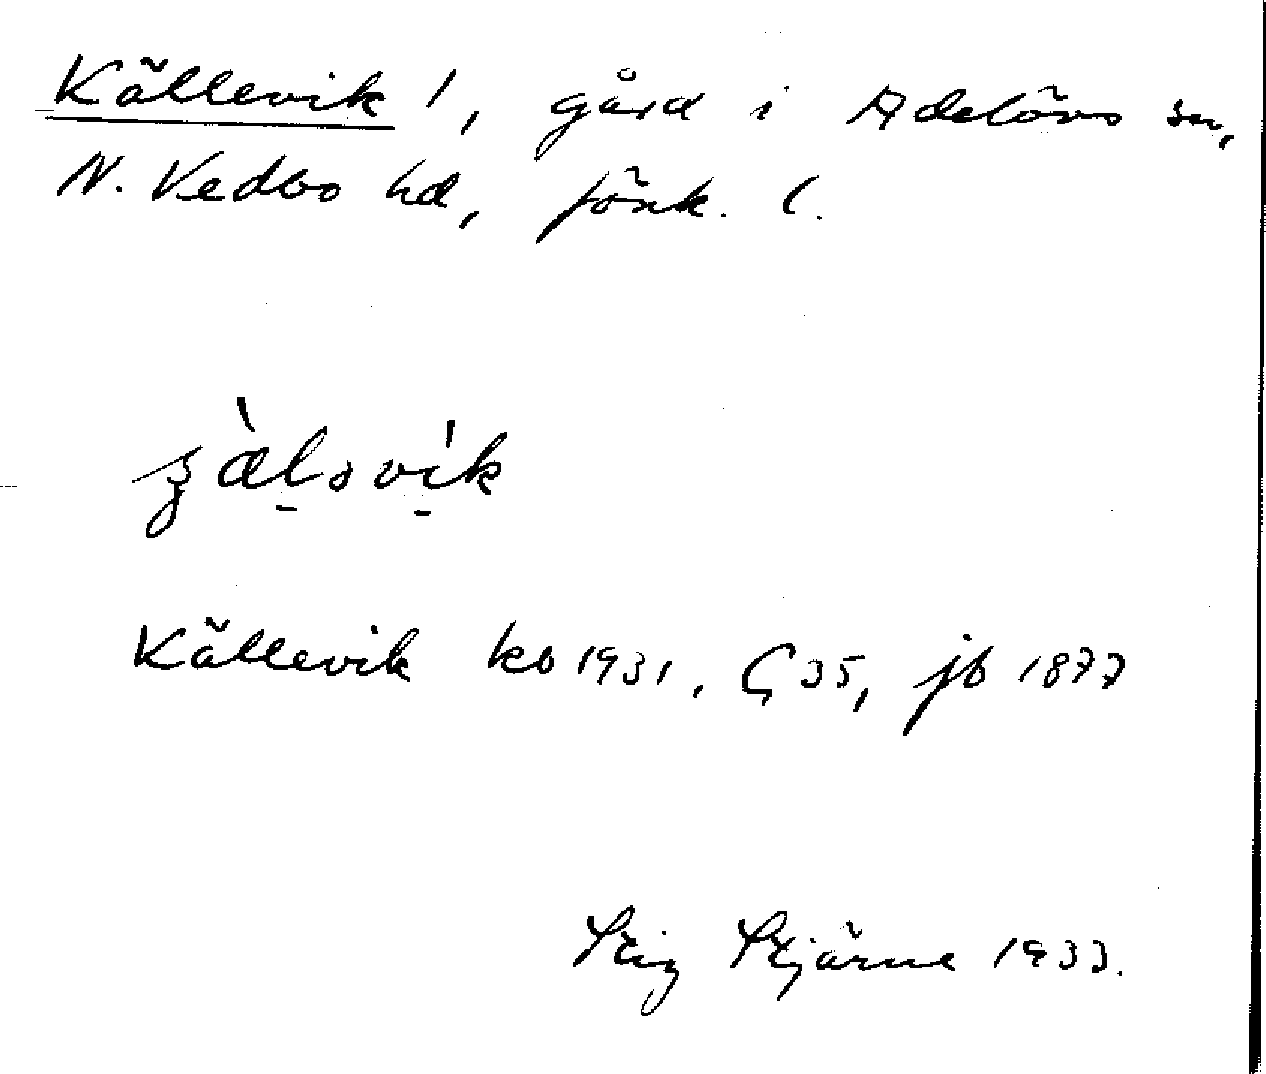 Källevik 1, gård i Adelövs sn,
N. Vedbo hd, Jönk. l.
Källevik kb 1931, G 35, jb 1877
Stig Stjärne 1933.